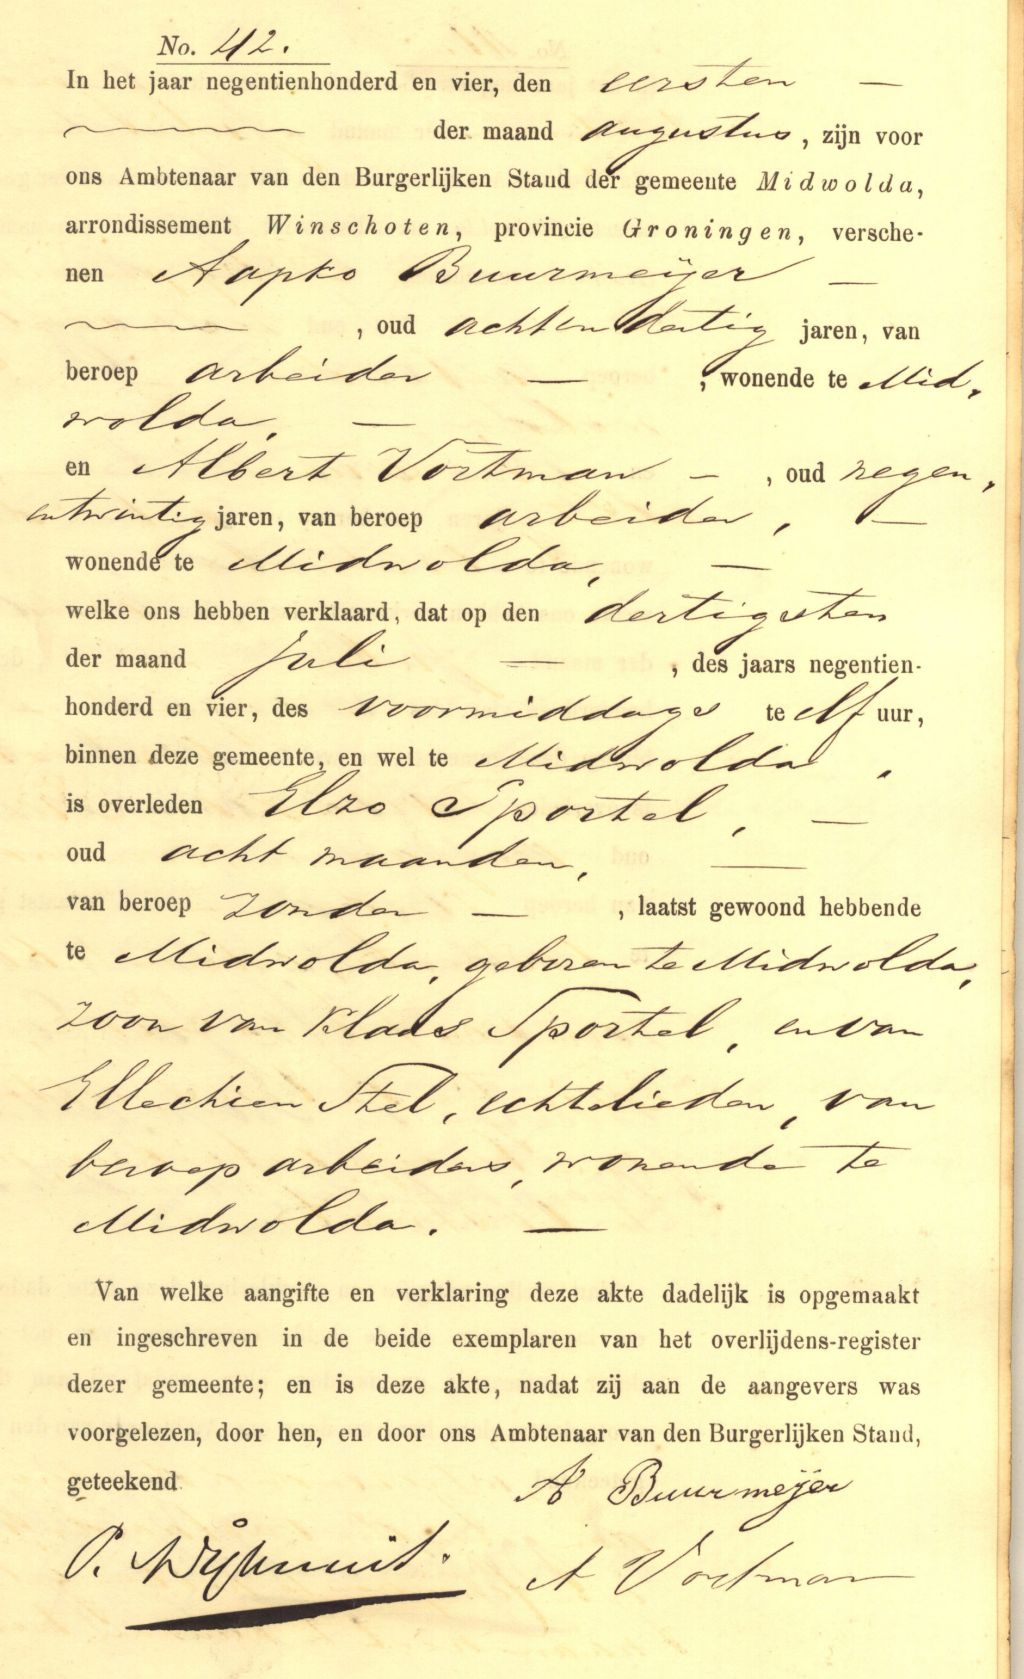 No. 42.
In het jaar negentienhonderd en vier, den eersten —
der maand augustus, zijn voor
ons Ambtenaar van den Burgerlijken Stand der gemeente Midwolda,
arrondissement Winschoten, provincie Groningen, versche-
nen Aapko Buurmeijer —
, oud achtendertig jaren, van
beroep arbeider — , wonende te Mid-
wolda, —
en Albert Vortman — , oud negen-
entwintig jaren, van beroep arbeider, —
wonende te Midwolda, —
welke ons hebben verklaard, dat op den dertigsten
der maand Juli — , des jaars negentien-
honderd en vier, des voormiddags te elf uur,
binnen deze gemeente, en wel te Midwolda,
is overleden Elzo Sportel, —
oud acht maanden, —
van beroep zonder — , laatst gewoond hebbende
te Midwolda, geboren te Midwolda,
zoon van Klaas Sportel, en van
Ellechien Stel, echtelieden, van
beroep arbeiders, wonende te
Midwolda. —
Van welke aangifte en verklaring deze akte dadelijk is opgemaakt
en ingeschreven in de beide exemplaren van het overlijdens-register
dezer gemeente; en is deze akte, nadat zij aan de aangevers was
voorgelezen, door hen, en door ons Ambtenaar van den Burgerlijken Stand,
geteekend
A Buurmeijer
A Vortman